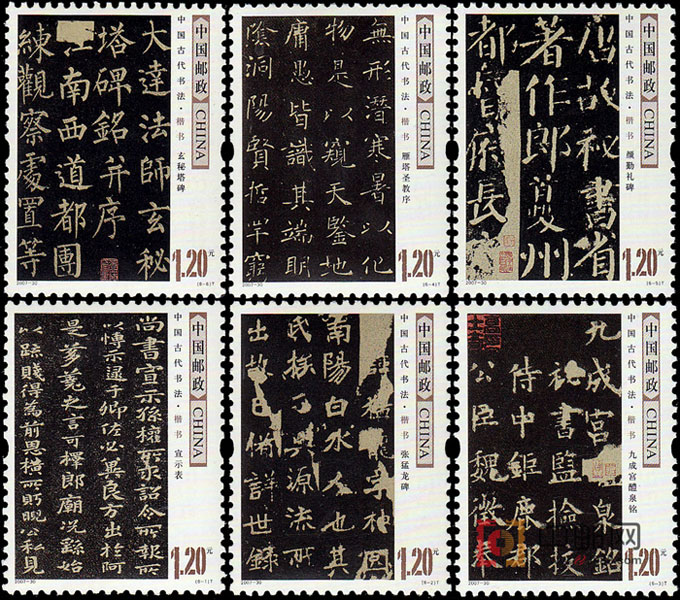 大達法師玄秘
塔碑銘并序
江南西道都團
練觀察處置等
中国邮政 CHINA
中国古代书法·楷书
玄秘塔碑
1.20元
2007-30
(6-6)T
無形潛寒暑以化
物是以窺天鑒地
庸愚皆識其端明
陰洞陽賢哲罕窮
中国邮政 CHINA
中国古代书法·楷书
雁塔圣教序
1.20元
2007-30
(6-4)T
唐故秘書省
著作郎夔州
都督府長
中国邮政 CHINA
中国古代书法·楷书
颜勤礼碑
1.20元
2007-30
(6-5)T
尚書宣示孫權所求詔令所報所
以博示逮于卿佐必冀良方出於阿
是芻蕘之言可擇郎廟況繇始
以疏賤得為前恩橫所眄睨公私見
中国邮政 CHINA
中国古代书法·楷书
宣示表
1.20元
2007-30
(6-1)T
猛龍字神冏
南陽白水人也其
氏族分興源流所
出故已備詳世錄
中国邮政 CHINA
中国古代书法·楷书
张猛龙碑
1.20元
2007-30
(6-2)T
九成宮泉銘
秘書監檢校
侍中鉅鹿郡
公臣魏徵奉
中国邮政 CHINA
中国古代书法·楷书
九成宫醴泉铭
1.20元
2007-30
(6-3)T